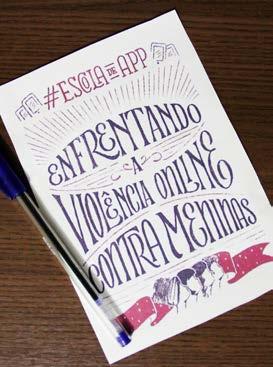 #ESCOLA DE APP
ENFRENTANDO
A
VIOLÊNCIA ONLINE
CONTRA MENINAS